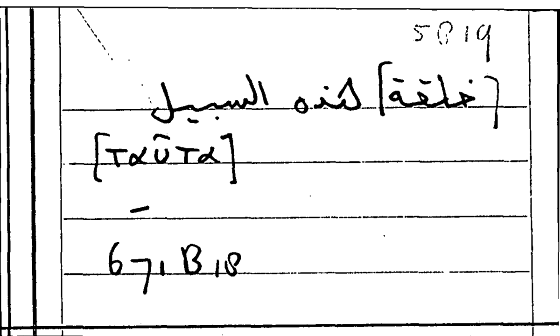 5819
[خلقة] هذه السبيل
[Ταῦτα]
–
671 B 18